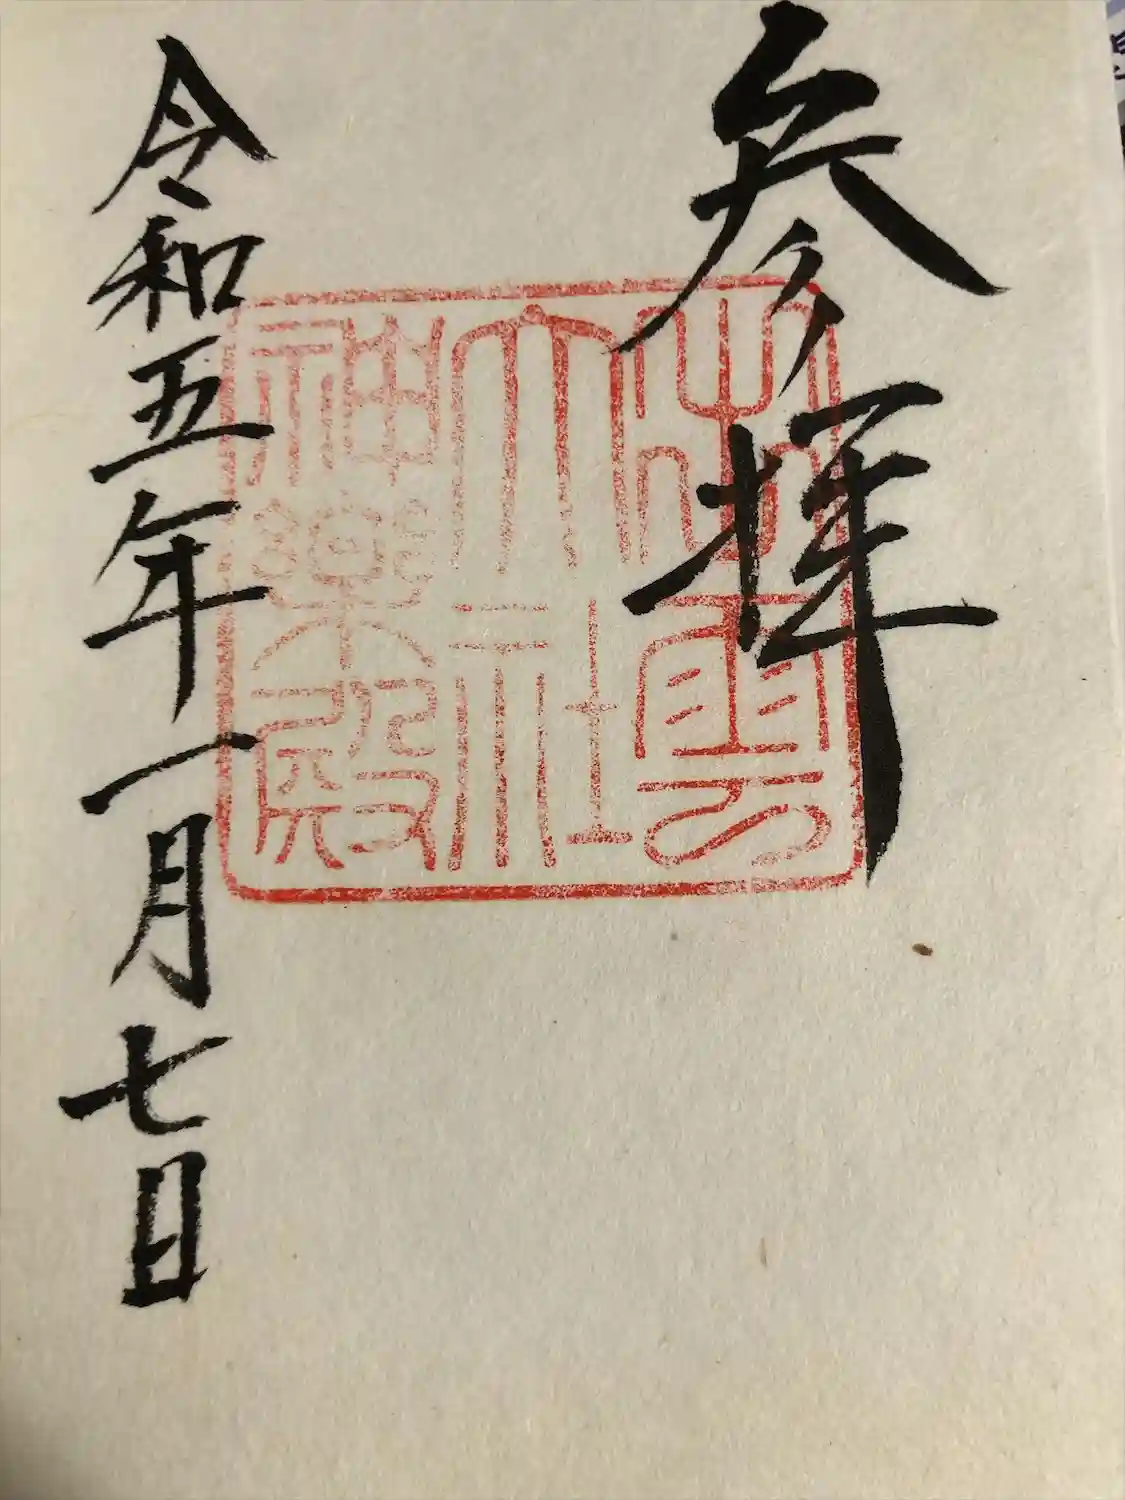 参拝
出雲
大社
神楽殿
令和五年一月七日